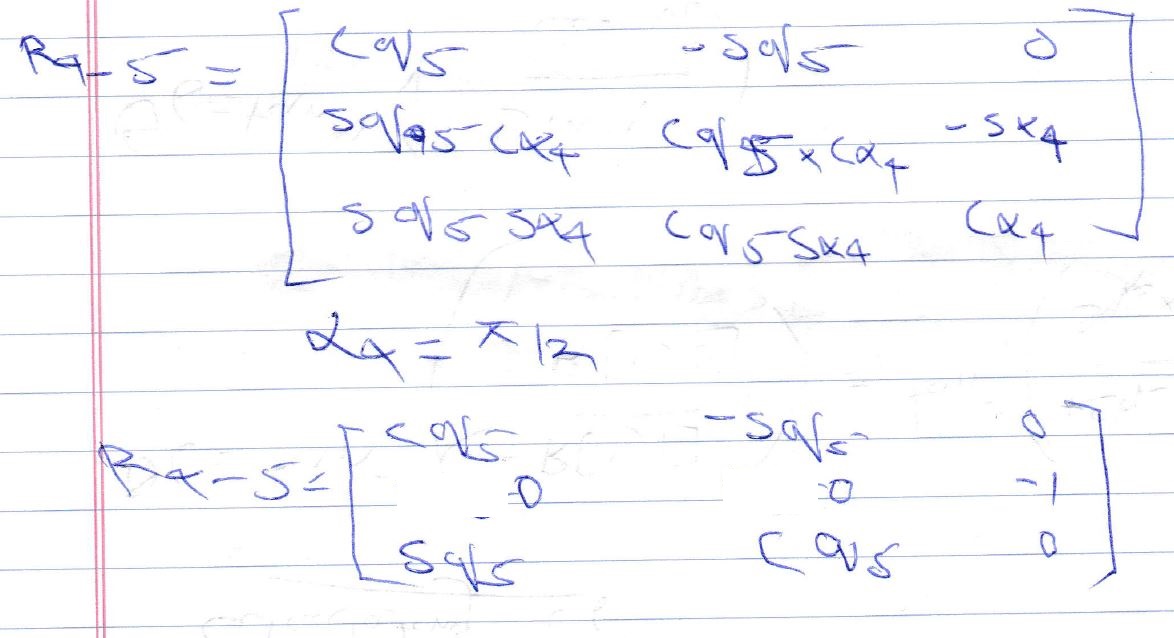 R4-5 = [ Cq5 -sq5 0
sq5 Cα4 Cq5 x Cα4 -sα4
sq5 sα4 Cq5 sα4 Cα4 ]
α4 = π/2
R4-5 = [ cq5 -sq5 0
0 0 -1
sq5 Cq5 0 ]